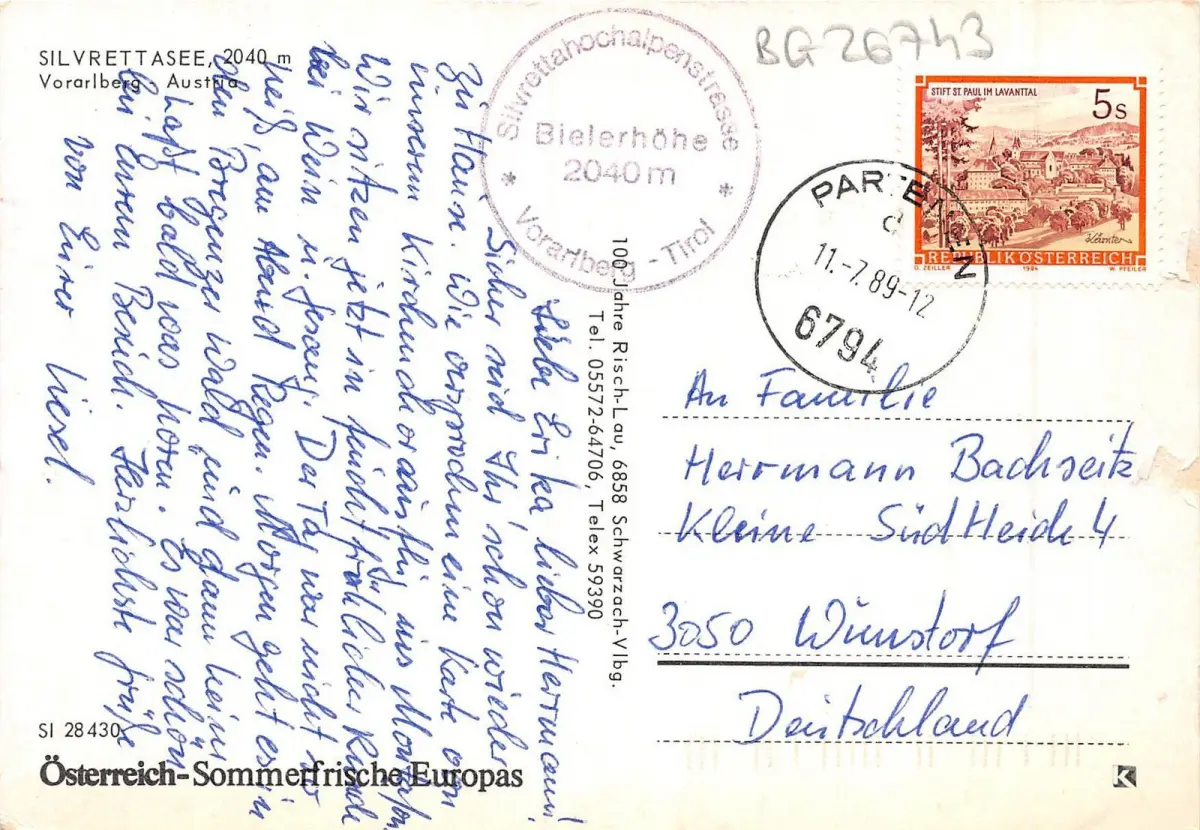 SILVRETTASEE, 2040 m
Vorarlberg Austria
Silvrettahochalpenstrasse
Bielerhöhe
2040m
* Vorarlberg - Tirol *
BG26743
STIFT ST. PAUL IM LAVANTTAL
5s
Kärnten
REPUBLIK ÖSTERREICH
O. ZEILLER 1984 W. PFEILER
PARTENEN
a
11.-7.89-12
6794
Liebe Erika lieber Herrmann!
Sicher seid Ihr schon wieder
zu Hause. Wie versprochen eine Karte von
unserem Kirchenchorausflug ins Montafon.
Wir sitzen jetzt in feuchtfröhlicher Runde
bei Wein u. Gesang. Der Tag war nicht so
heiß, am Abend Regen. Morgen geht es in
den Bregenzer Wald und dann heim.
Laßt bald was hören. Es war schön
bei Eurem Besuch. Herzlichste Grüße
von Eurer Liesel.
100 Jahre Risch-Lau, 6858 Schwarzach-Vlbg.
Tel. 05572-64706, Telex 59390
An Familie
Herrmann Bachseitz
Kleine SüdHeide 4
3050 Wunstorf
Deutschland
SI 28430
Österreich-Sommerfrische Europas
K